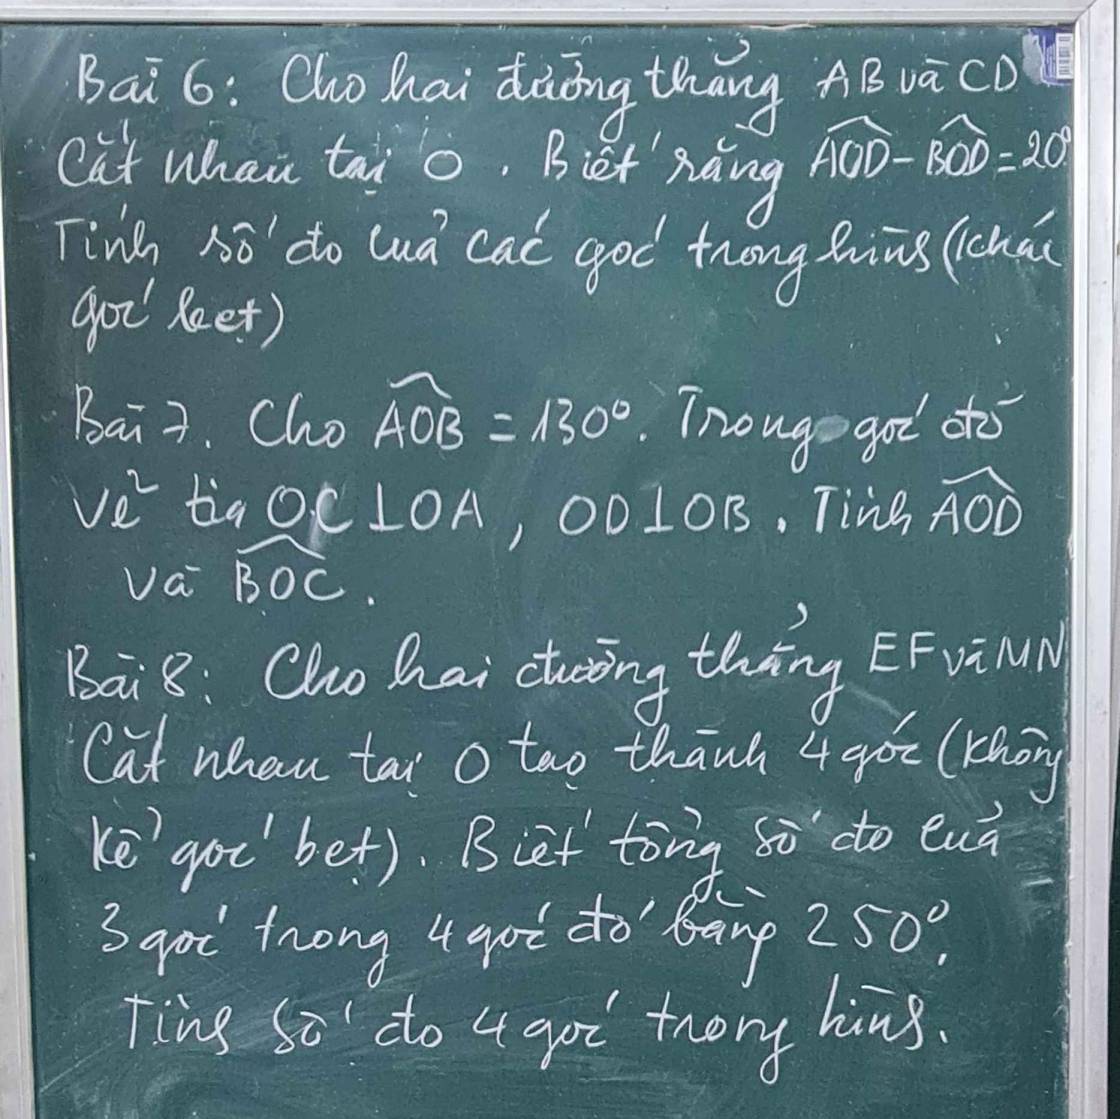 Bài 6: Cho hai đường thẳng AB và CD
Cắt nhau tại O. Biết rằng AOD - BOD = 20°
Tính số đo của các góc trong hình (khác
góc bẹt)
Bài 7. Cho AOB = 130°. Trong góc đó
vẽ tia OC ⊥ OA, OD ⊥ OB. Tính AOD
và BOC.
Bài 8: Cho hai đường thẳng EF và MN
Cắt nhau tại O tạo thành 4 góc (không
kể góc bẹt). Biết tổng số đo của
3 góc trong 4 góc đó bằng 250°.
Tính số đo 4 góc trong hình.